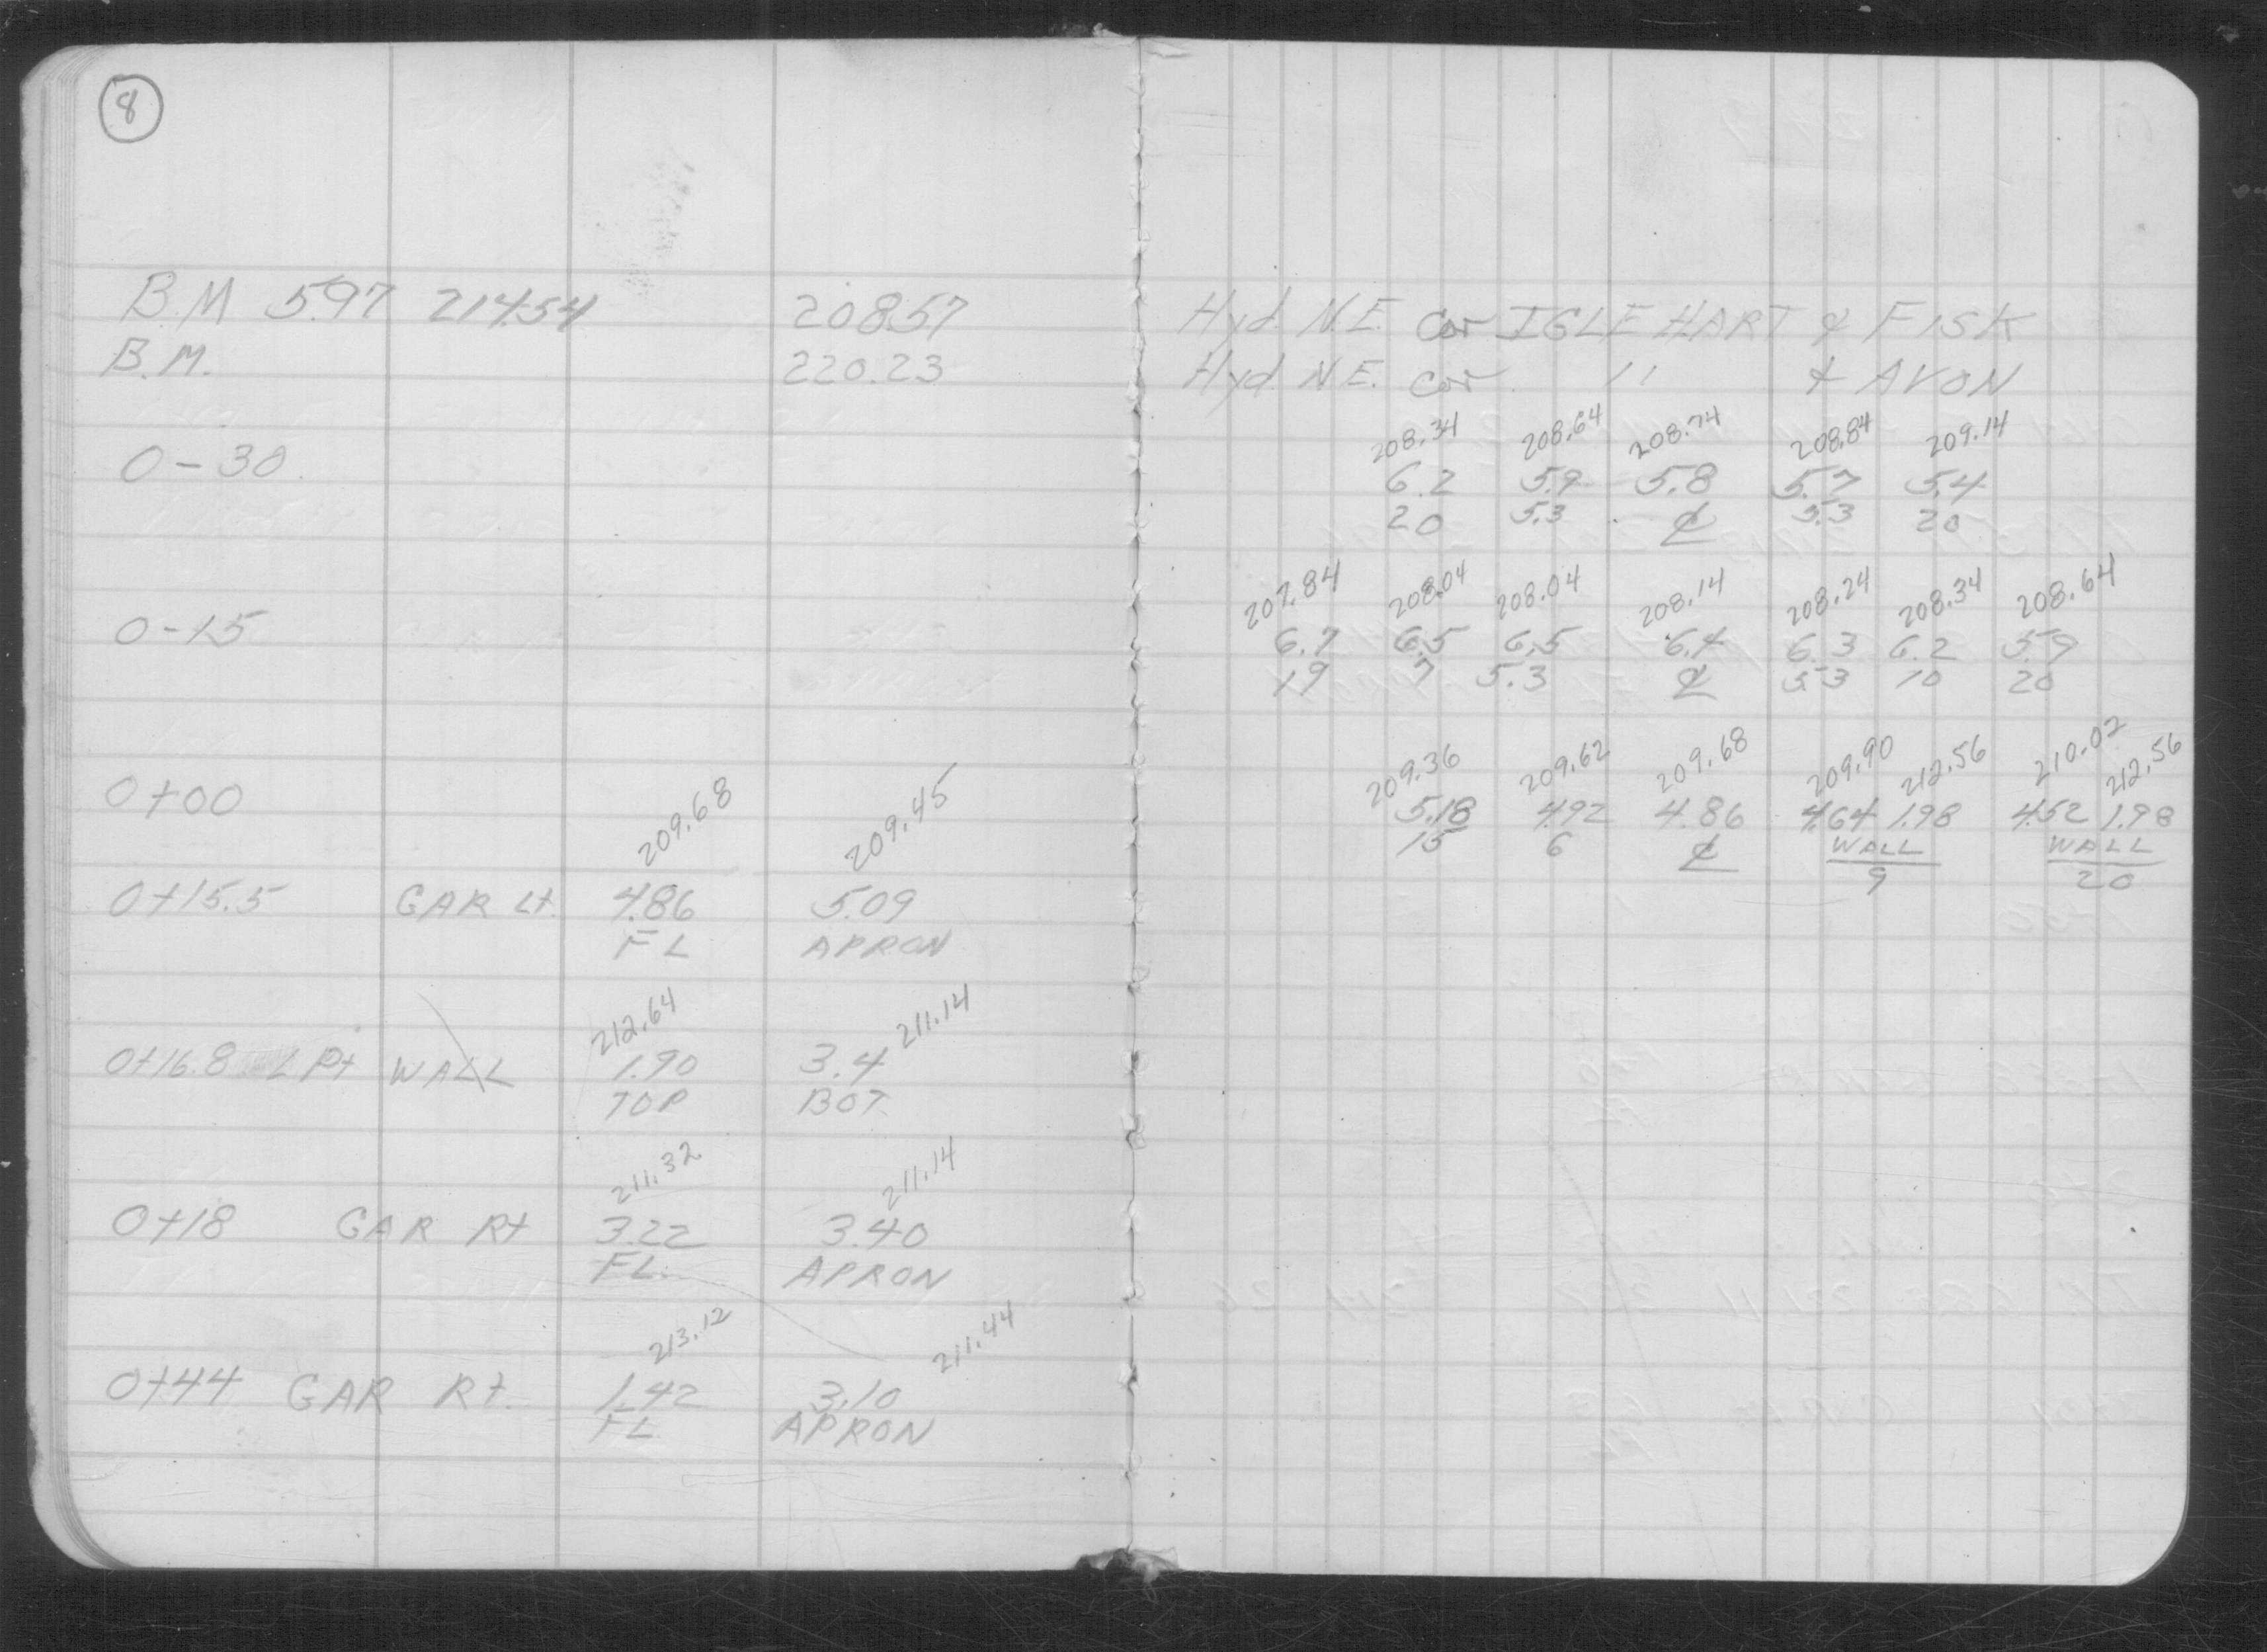 8
B.M 5.97 214.54 208.57 Hyd. N.E. Cor IGLEHART & FISK
B.M. 220.23 Hyd N.E. Cor " & AVON
208.34 208.64 208.74 208.84 209.14
0-30 6.2 5.9 5.8 5.7 5.4
20 5.3 ℄ 5.3 20
207.84 208.04 208.04 208.14 208.24 208.34 208.64
0-15 6.7 6.5 6.5 6.4 6.3 6.2 5.9
19 7 5.3 ℄ 5.3 10 20
209.36 209.62 209.68 209.90 212.56 210.02 212.56
0+00 5.18 4.92 4.86 4.64 1.98 4.52 1.98
15 6 ℄ WALL WALL
9 20
209.68 209.45
0+15.5 GAR Lt. 4.86 5.09
FL APRON
212.64 211.14
0+16.8 L Pt WALL 1.90 3.4
TOP BOT
211.32 211.14
0+18 GAR Rt 3.22 3.40
FL. APRON
213.12 211.44
0+44 GAR Rt. 1.42 3.10
FL APRON